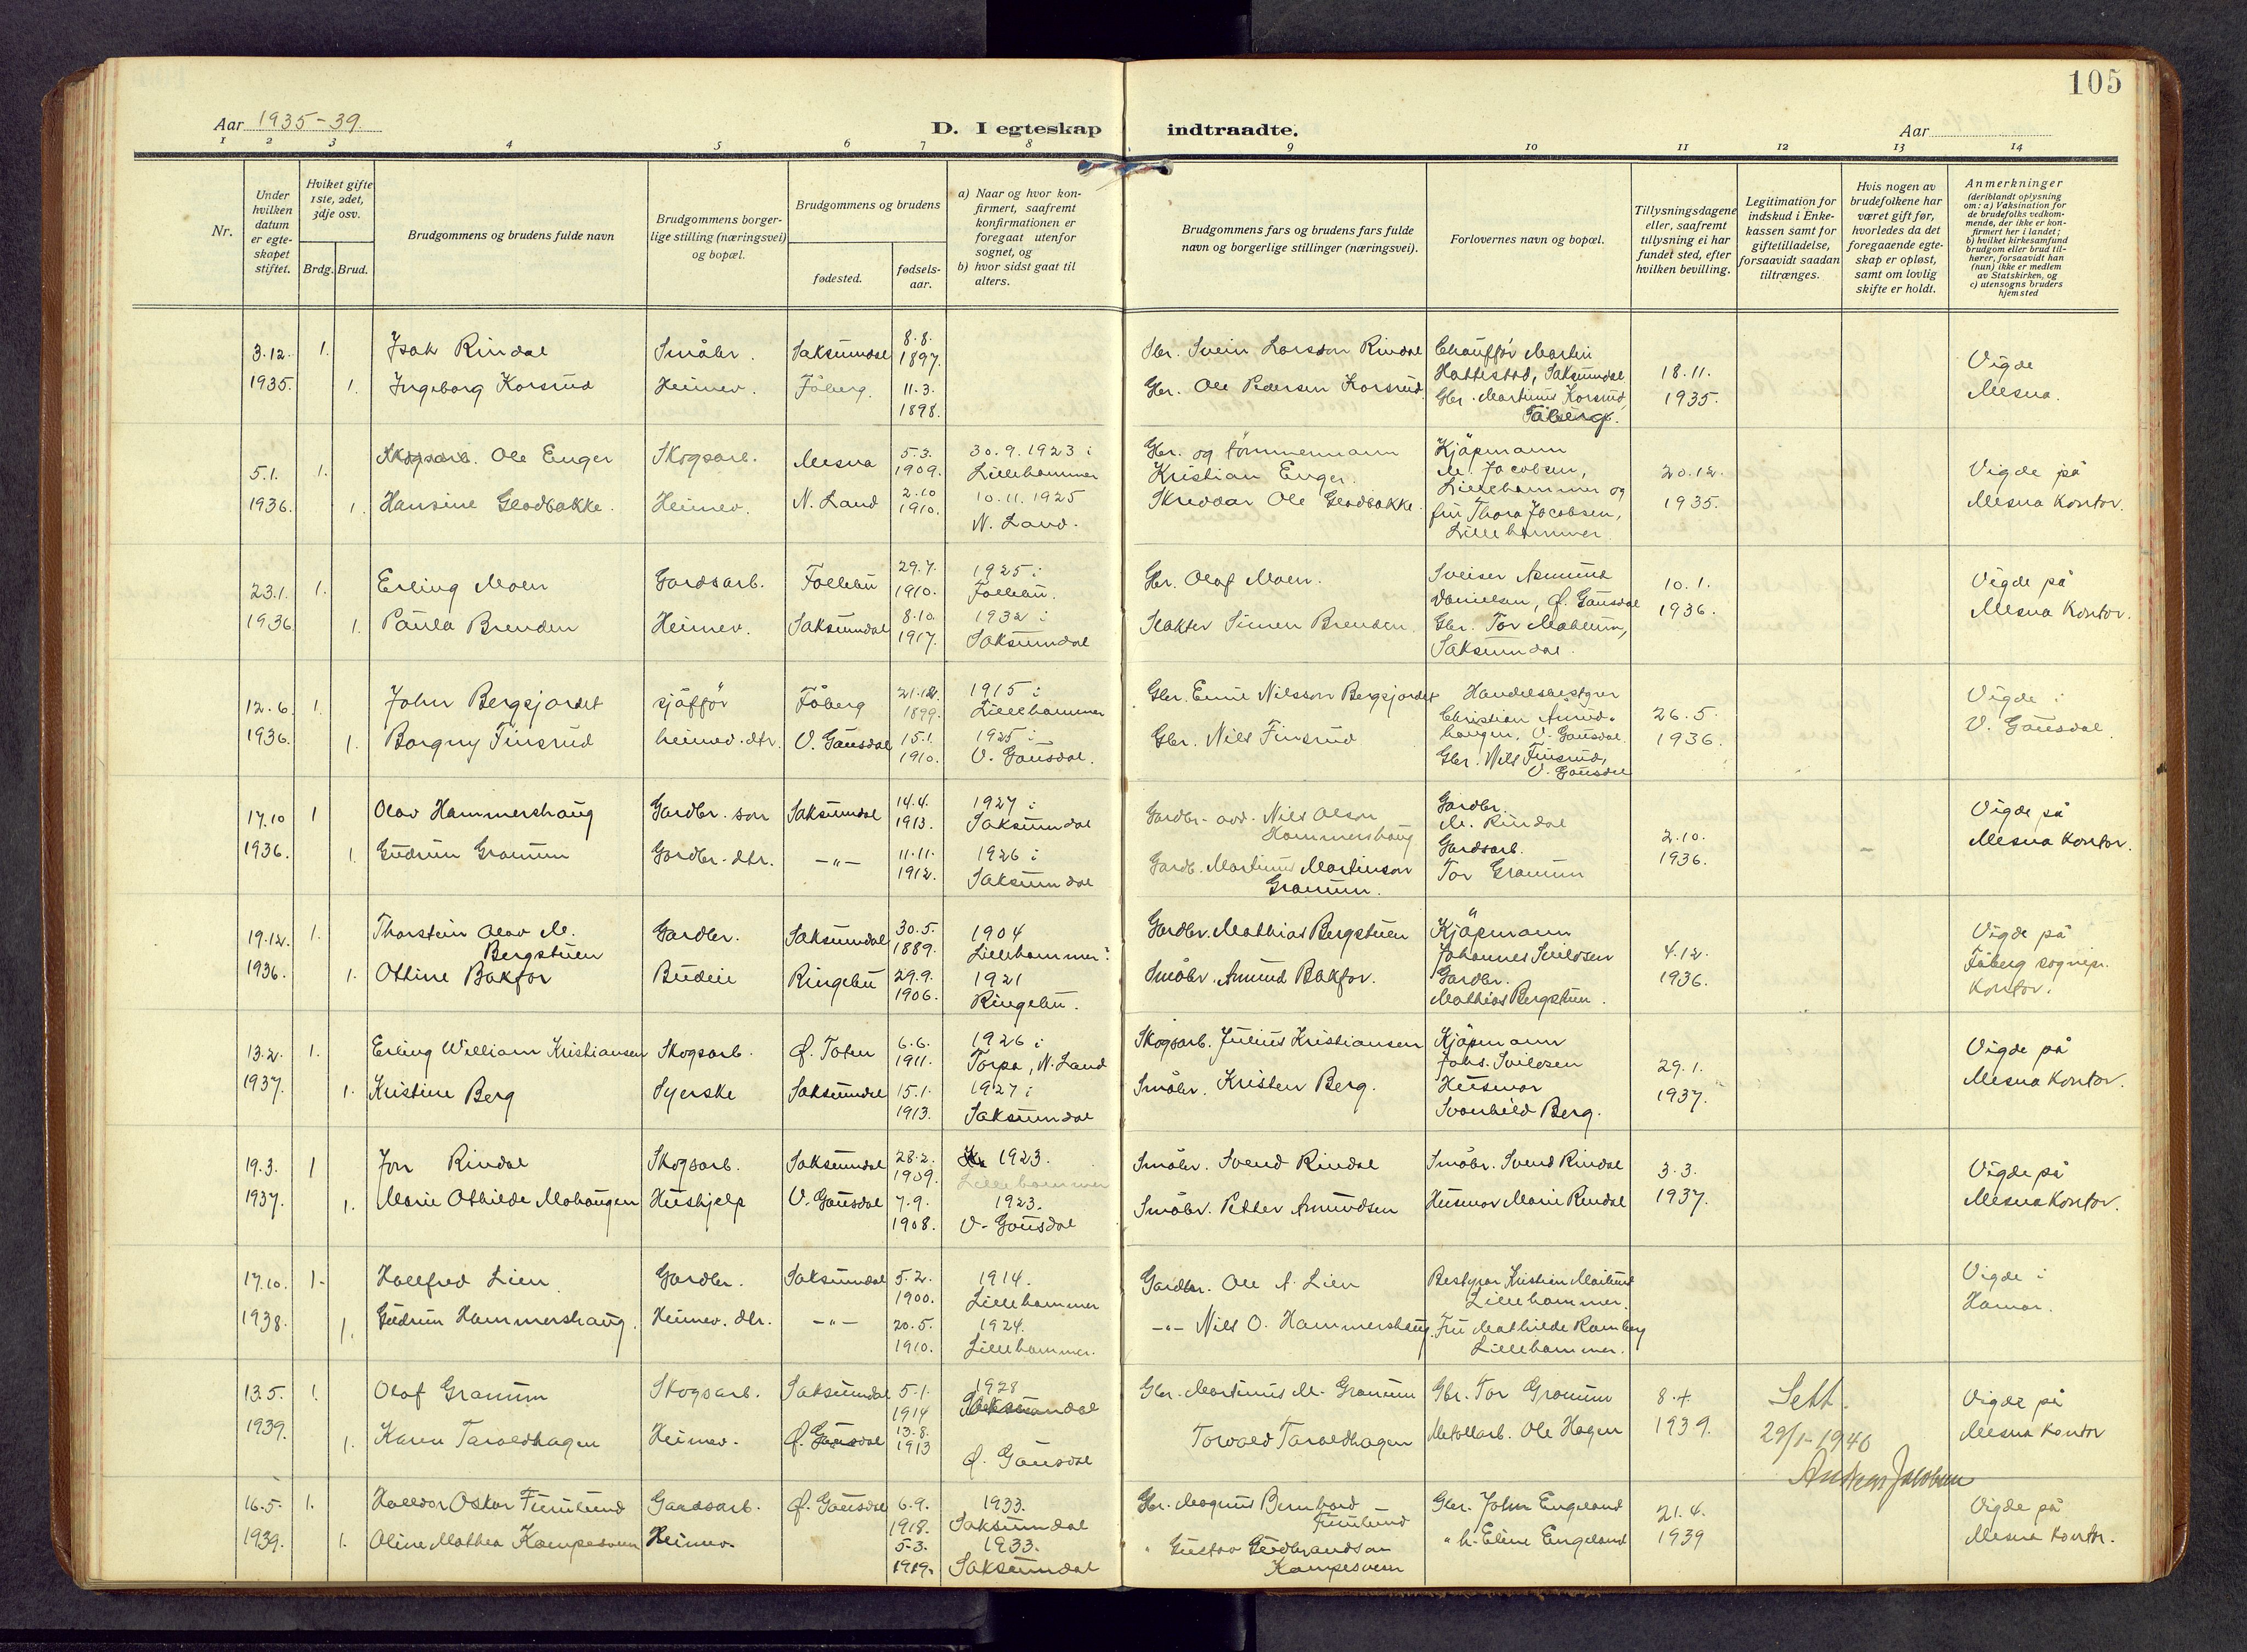 105
Aar 1935-39.
D. I egteskap indtraadte.
Aar
1 2 3 4 5 6 7 8 9 10 11 12 13 14
Nr.
Under hvilken datum er egteskapet stiftet.
Hvilket gifte 1ste, 2det, 3dje osv.
Brdg. Brud.
Brudgommens og brudens fulde navn
Brudgommens borgerlige stilling (næringsvei) og bopæl.
Brudgommens og brudens
fødested.
fødselsaar.
a) Naar og hvor konfirmert, saafremt konfirmationen er foregaat utenfor sognet, og
b) hvor sidst gaat til alters.
Brudgommens fars og brudens fars fulde navn og borgerlige stillinger (næringsvei).
Forlovernes navn og bopæl.
Tillysningsdagene eller, saafremt tillysning ei har fundet sted, efter hvilken bevilling.
Legitimation for indskud i Enkekassen samt for giftetilladelse, forsaavidt saadan tiltrænges.
Hvis nogen av brudefolkene har været gift før, hvorledes da det foregaaende egteskap er opløst, samt om lovlig skifte er holdt.
Anmerkninger
(deriblandt oplysning om: a) Vaksination for de brudefolks vedkommende, der ikke er konfirmert her i landet; b) hvilket kirkesamfund brudgom eller brud tilhører, forsaavidt han (hun) ikke er medlem av Statskirken, og c) utensogns bruders hjemsted
3.12. 1935. 1. Isak Rindal Småbr. Saksumdal 8.8. 1897.
1. Ingeborg Korsrud Heimev. Fåberg. 11.3. 1898.
Gbr. Svein Larsson Rindal
Gbr. Ole Pedersen Korsrud
Chauffør Martin Hattestad, Saksumdal
Gbr. Martinus Korsrud, Fåberg.
18.11. 1935.
Vigde Mesna.
5.1. 1936. 1. Ole Enger Skogsarb. Mesna 5.3. 1909. 30.9.1923 i Lillehammer
1. Hansine Glæbakke. Heimev. N. Land 2.10 1910. 10.11.1925 N. Land.
Gbr. og tømmermann Kristian Enger.
Skreddar Ole Gladbakke.
Kjøpmann M. Jacobsen, Lillehammer og
fru Thora Jacobsen, Lillehammer
20.12. 1935.
Vigde på Mesna kontor.
23.1. 1936 1. Erling Moen Gardsarb. Follebu 29.7. 1910. 1925 i Follebu.
1. Paula Brenden Heimev. Saksumdal 8.10. 1917. 1932 i Saksumdal
Gbr. Olaf Moen.
Slakter Simen Brenden
Sveiser Asmund Danielsen, Ø. Gausdal
Gbr. Tor Mæhlum, Saksumdal.
10.1. 1936.
Vigde på Mesna Kontor.
12.6 1936. 1. John Bergsjordet sjåffør Fåberg 21.12. 1899. 1915 i Lillehammer
1. Borgny Finsrud heimev. dtr. V. Gausdal 15.1. 1910. 1925 i V. Gausdal.
Gbr. Emil Nilsson Bergsjordet
Gbr. Nils Finsrud
Handelsbestyrer Christian Aurudhaugen, V. Gausdal.
Gbr. Nils Finsrud, V. Gausdal
26.5. 1936.
Vigde i V. Gausdal.
17.10 1936. 1 Olav Hammershaug Gardbr. son Saksumdal 14.4. 1913. 1927 i Saksumdal
1. Gudrun Granum Gardbr. dtr. -"- 11.11. 1912. 1926 i Saksumdal
Gardbr. Nils Olson Hammershaug
Gardb. Martinus Martinson Granum.
Gardbr. M. Rindal
Gardsarb. Tor Granum
2.10. 1936.
Vigde på Mesna kontor.
19.12. 1936. 1. Thorstein Olav M. Bergstuen Gardbr. Saksumdal 30.5. 1889. 1904 Lillehammer
1. Ottine Bakfor Budeie Ringebu 29.9. 1906. 1921 Ringebu.
Gardbr. Mathias Bergstuen
Småbr. Amund Bakfor.
Kjøpmann Johannes Suilosen
Gardbr. Mathias Bergstuen.
4.12. 1936.
Vigde på Fåberg sognepr. kontor.
13.2. 1937. 1. Erling William Kristiansen Skogsarb. Ø. Toten 6.6. 1911. 1926 i Torpa, N. Land
1. Kristine Berg Syerske Saksumdal 15.1. 1913. 1927 i Saksumdal
Skogsarb. Julius Kristiansen
Småbr. Kristen Berg.
Kjøpmann Johs. Suilosen
Husmor Svanhild Berg.
29.1. 1937.
Vigde på Mesna Kontor.
19.3. 1937. 1 Jon Rindal Skogsarb. Saksumdal 28.2. 1909. 1923. Lillehammer
1. Marie Othilde Mohaugen Hushjelp V. Gausdal 7.9. 1908. 1923. V. Gausdal
Småbr. Svend Rindal
Småbr. Petter Amundsen
Småbr. Svend Rindal
Husmor Marie Rindal
3.3. 1937.
Vigde på Mesna Kontor.
17.10. 1938. 1. Hallfred Lien Gardbr. Saksumdal 5.2. 1900. 1914. Lillehammer
1. Gudrun Hammershaug. Heimev. dtr. -"- 20.5. 1910. 1924. Lillehammer.
Gardbr. Ole A. Lien
-"- Nils O. Hammershaug.
Bestyrer Kristian Moilund Lillehammer.
Fru Mathilde Ramberg Lillehammer.
Vigde i Hamar.
13.5. 1939. 1. Olaf Granum Skogsarb. Saksumdal 5.1. 1914 1928 Saksumdal
1. Karen Taraldhagen Heimev. Ø. Gausdal 13.8. 1913 Ø. Gausdal
Gbr. Martinus M. Granum
Torvald Taraldhagen
Gbr. Tor Granum
Metallarb. Ole Hagen
8.4. 1939.
Sett. 29/1-1940 Andreas Jacobsen
Vigde på Mesna kontor
16.5. 1939. 1. Halldor Oskar Furulund Gaardsarb. Ø. Gausdal 6.9. 1918. 1933. Saksumdal
1. Oline Mathea Kampesveen Heimev. 5.3. 1919. 1933. Saksumdal
Gbr. Magnus Bernhard Furulund
" Gustav Gudbrandson Kampesveen
Gbr. John Engeland
" h. Eline Engeland
21.4. 1939
Vigde på Mesna kontor.